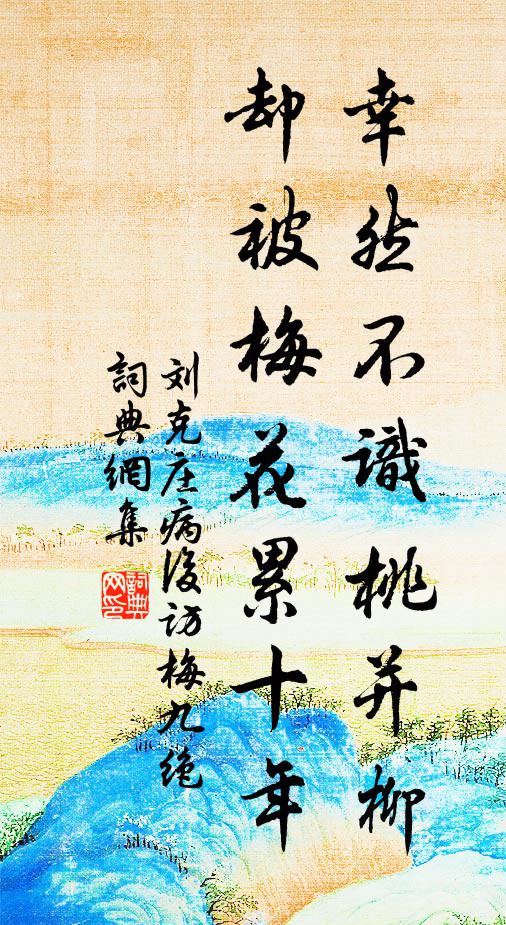 幸然不識桃并柳
却被梅花累十年
刘克庄病後访梅九绝
詞典網集
詞典
网印